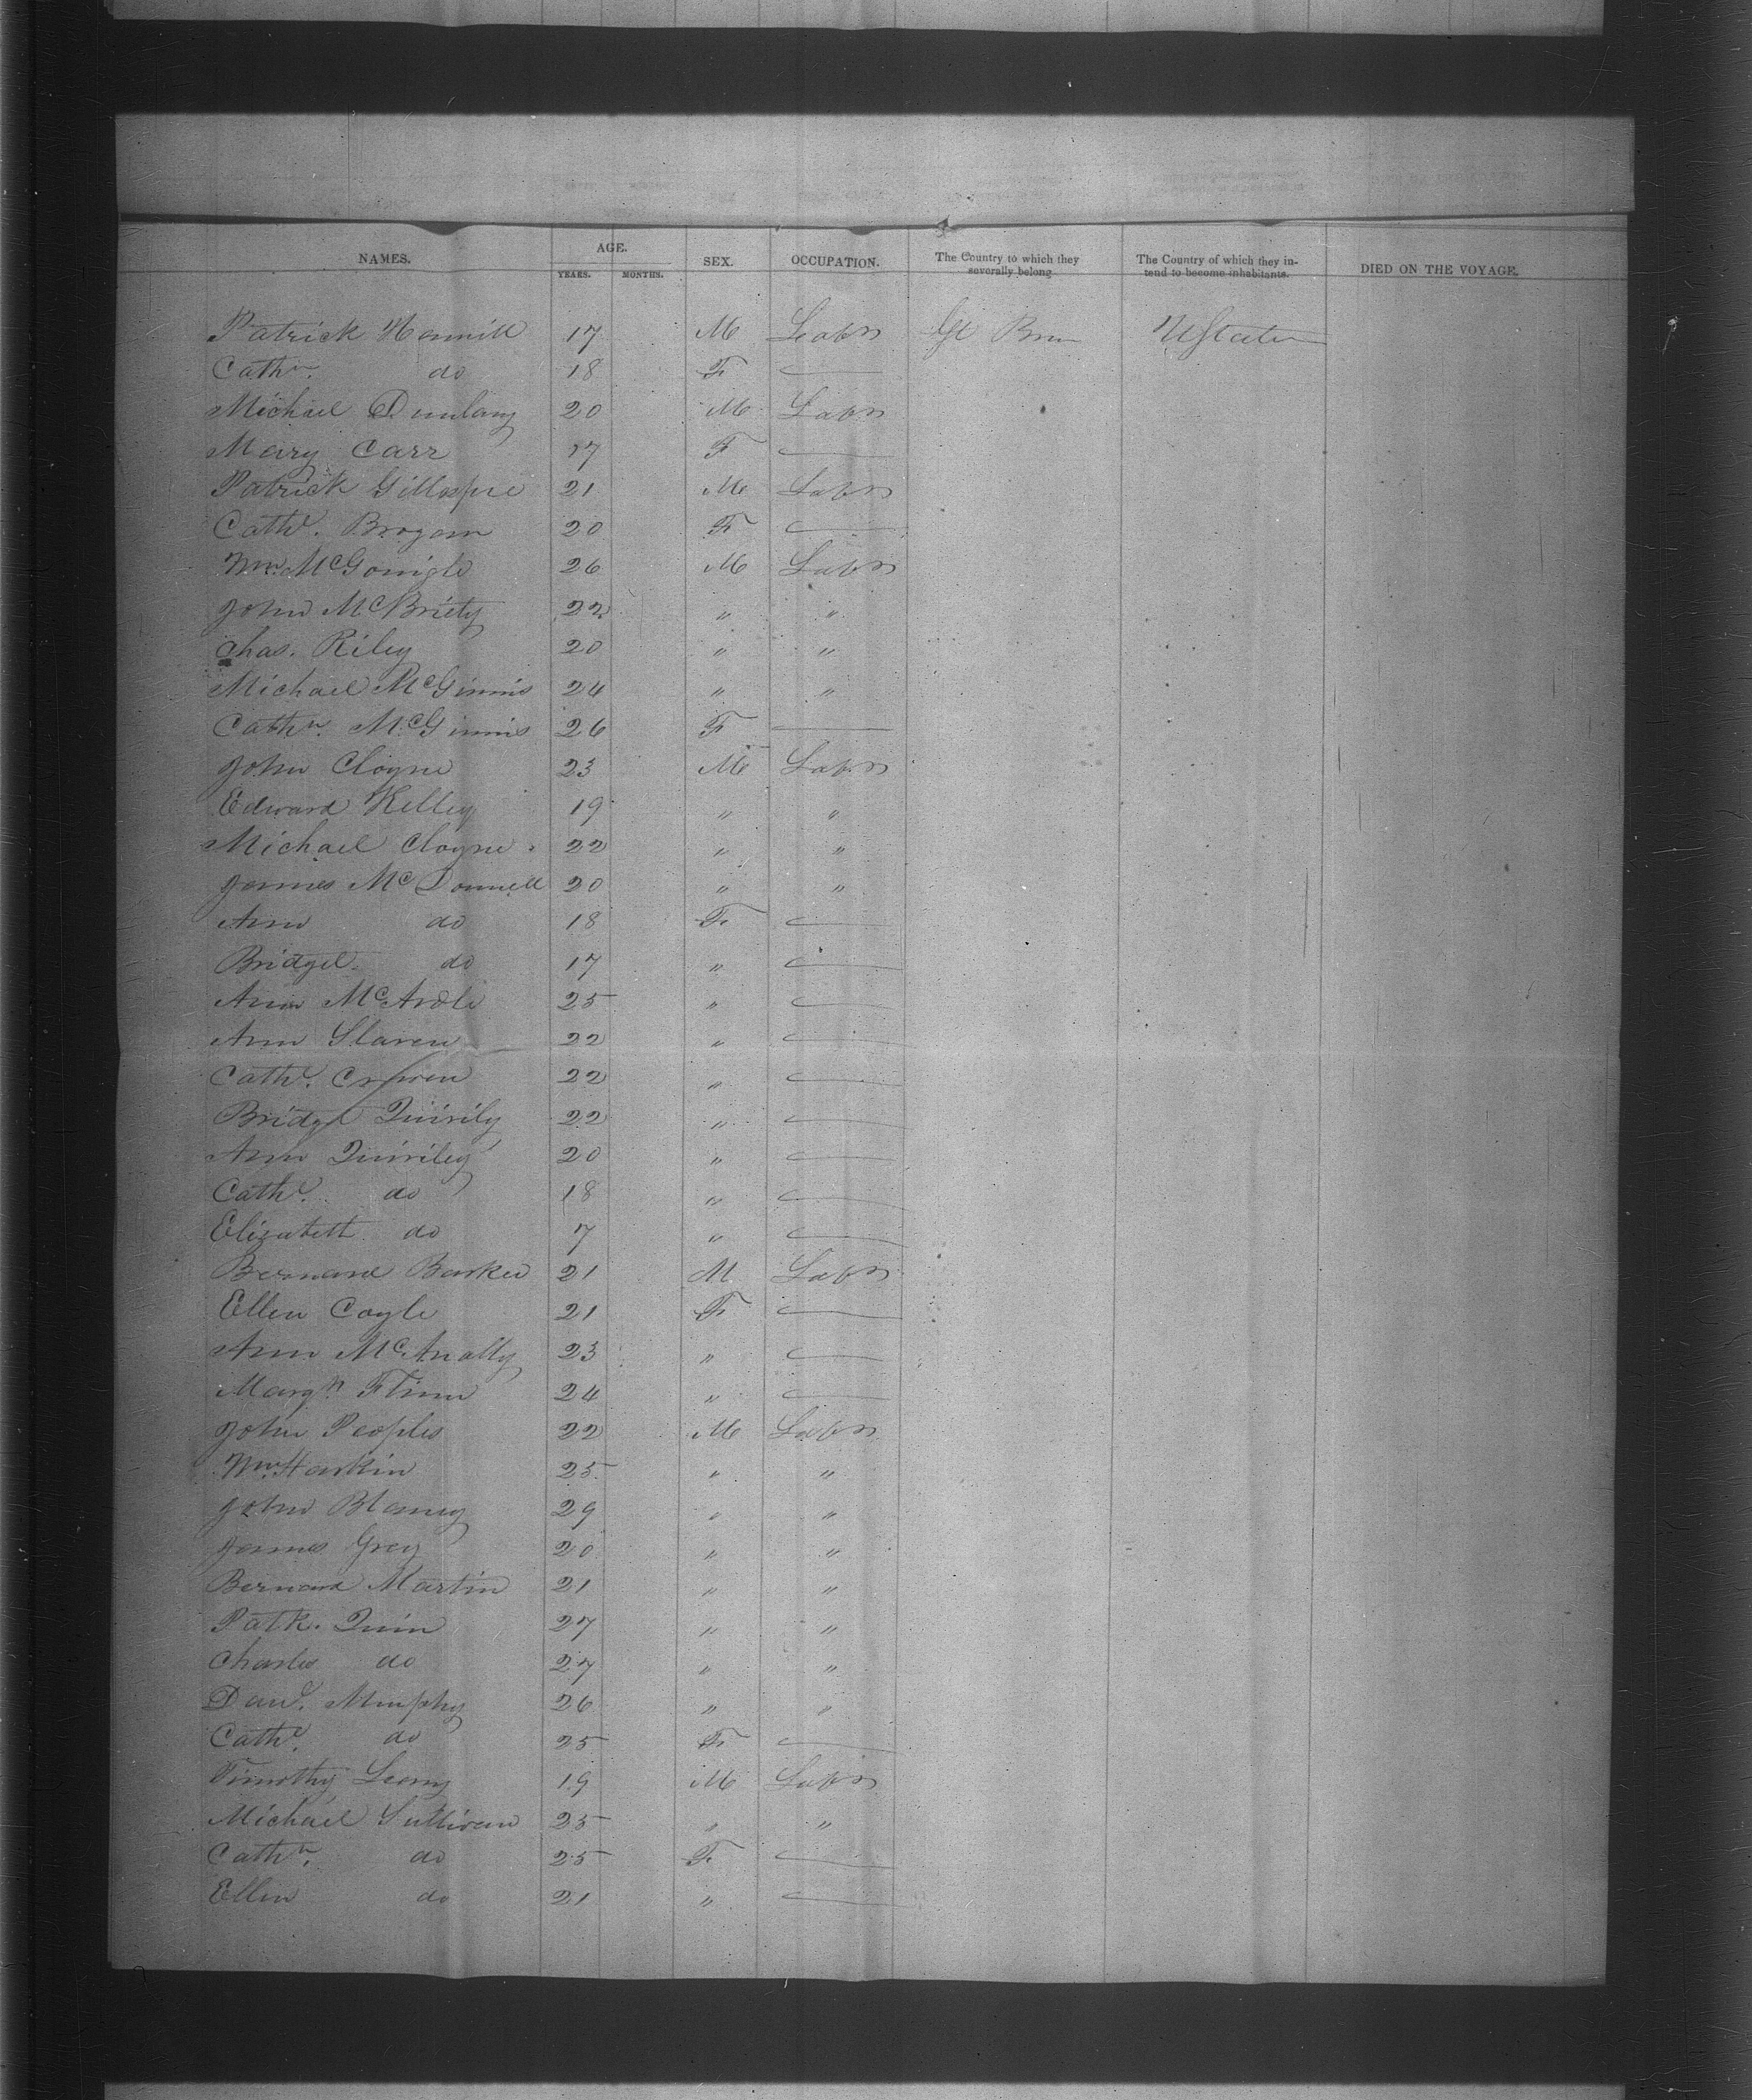 NAMES. AGE. YEARS. MONTHS. SEX. OCCUPATION. The Country to which they severally belong The Country of which they intend to become inhabitants. DIED ON THE VOYAGE.
Patrick 17 M Labr Gt Brn UStates
Cathn. do 18 F
Michael Dunlavy 20 M Labr
Mary Carr 17 F
Patrick Gillespie 21 M Labr
Cathe. Brogan 20 F
Wm. McGonigle 26 M Labr
John McBriety 22 " "
Chas. Riley 20 " "
Michael McGinnis 24 " "
Cathn. McGinnis 26 F
John Cloyne 23 M Labr
Edward Kelley 19 " "
Michael Cloyne 22 " "
James McDonnell 20 " "
Ann do 18 F
Bridget do 17 "
Ann McArdle 25 "
Ann Slaven 22 "
Cathe. 22 "
Bridget Quirily 22 "
Ann Quiriley 20 "
Cathe. do 18 "
Elizabeth do 7 "
Bernard 21 M Labr
Ellen Coyle 21 F
Ann McAnally 23 "
Margt. Flinn 24 "
John Peoples 22 M Labr
Wm. Harkin 25 " "
John Blaney 29 " "
James Grey 20 " "
Bernard Martin 21 " "
Patk. Quin 27 " "
Charles do 27 " "
Danl. Murphy 26 " "
Cathe. do 25 F
Timothy Leary 19 M Labr
Michael Sullivan 25 " "
Cathn. do 25 F
Ellen do 21 "